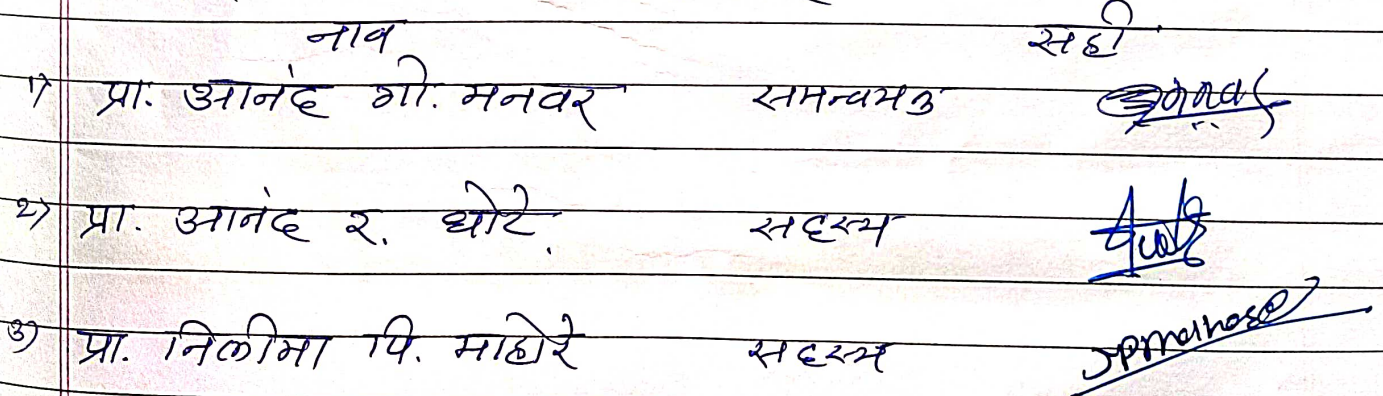 नाव सही
१) प्रा. आनंद गो. मनवर समन्वयक
२) प्रा. आनंद र. धोटे. सदस्य
३) प्रा. निलीमा पि. माहोरे सदस्य